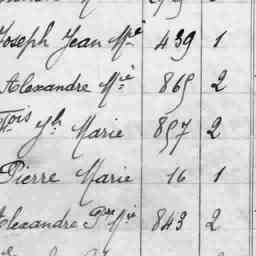 Joseph Jean Mie 439 1
Alexandre Mie 865 2
Fois Jh Marie 857 2
Pierre Marie 16 1
Alexandre Pre Mie 843 2